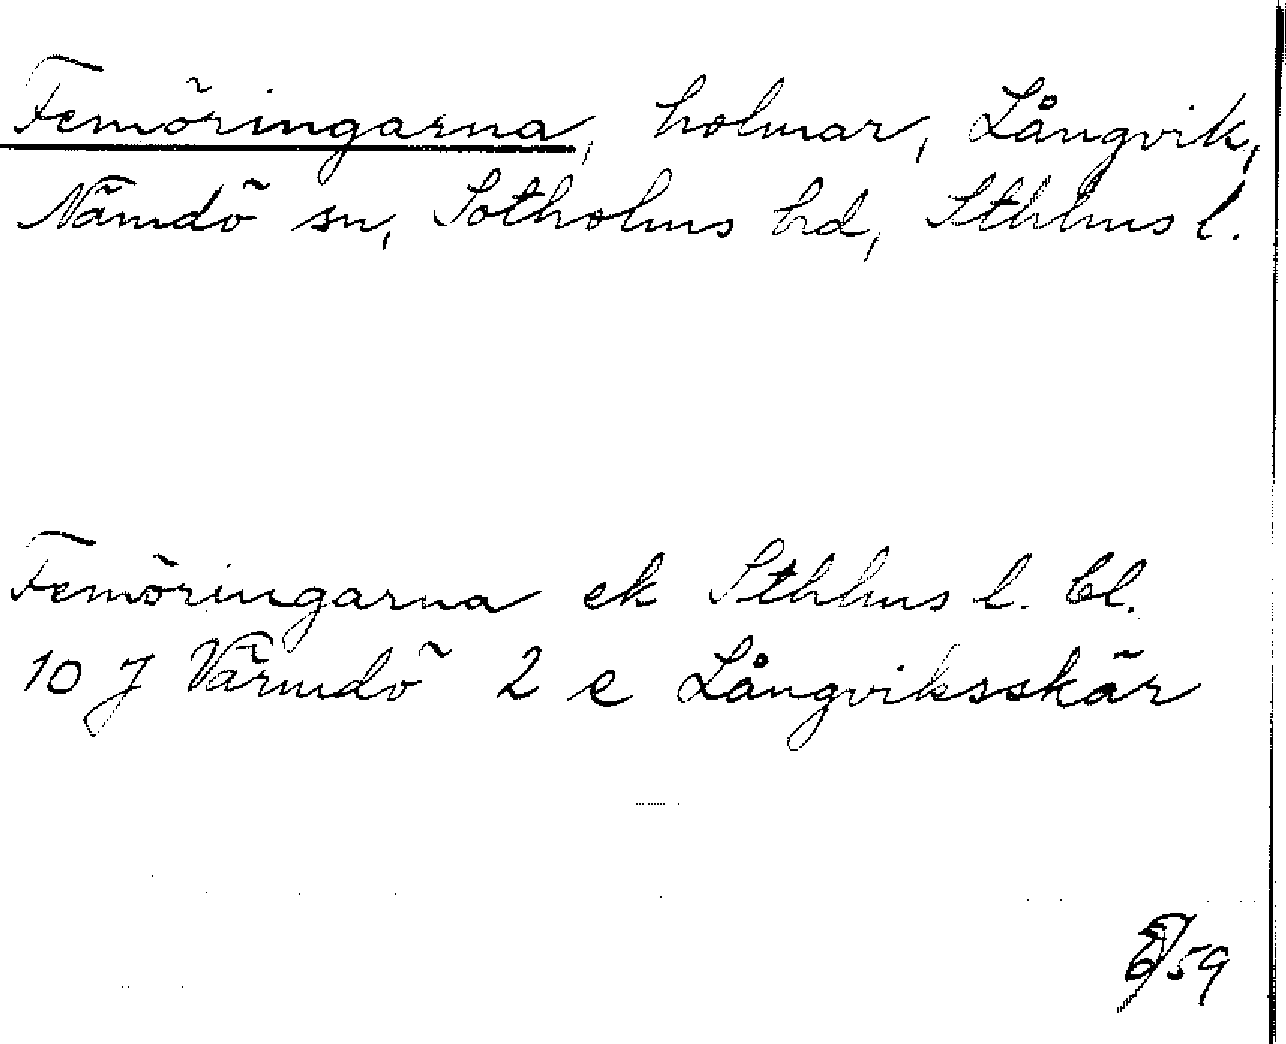 Femöringarna, holmar, Långvik,
Nämdö sn, Sotholms hd, Sthlms l.
Femöringarna ek Sthlms l. bl.
10 J Värmdö 2 e Långviksskär
59